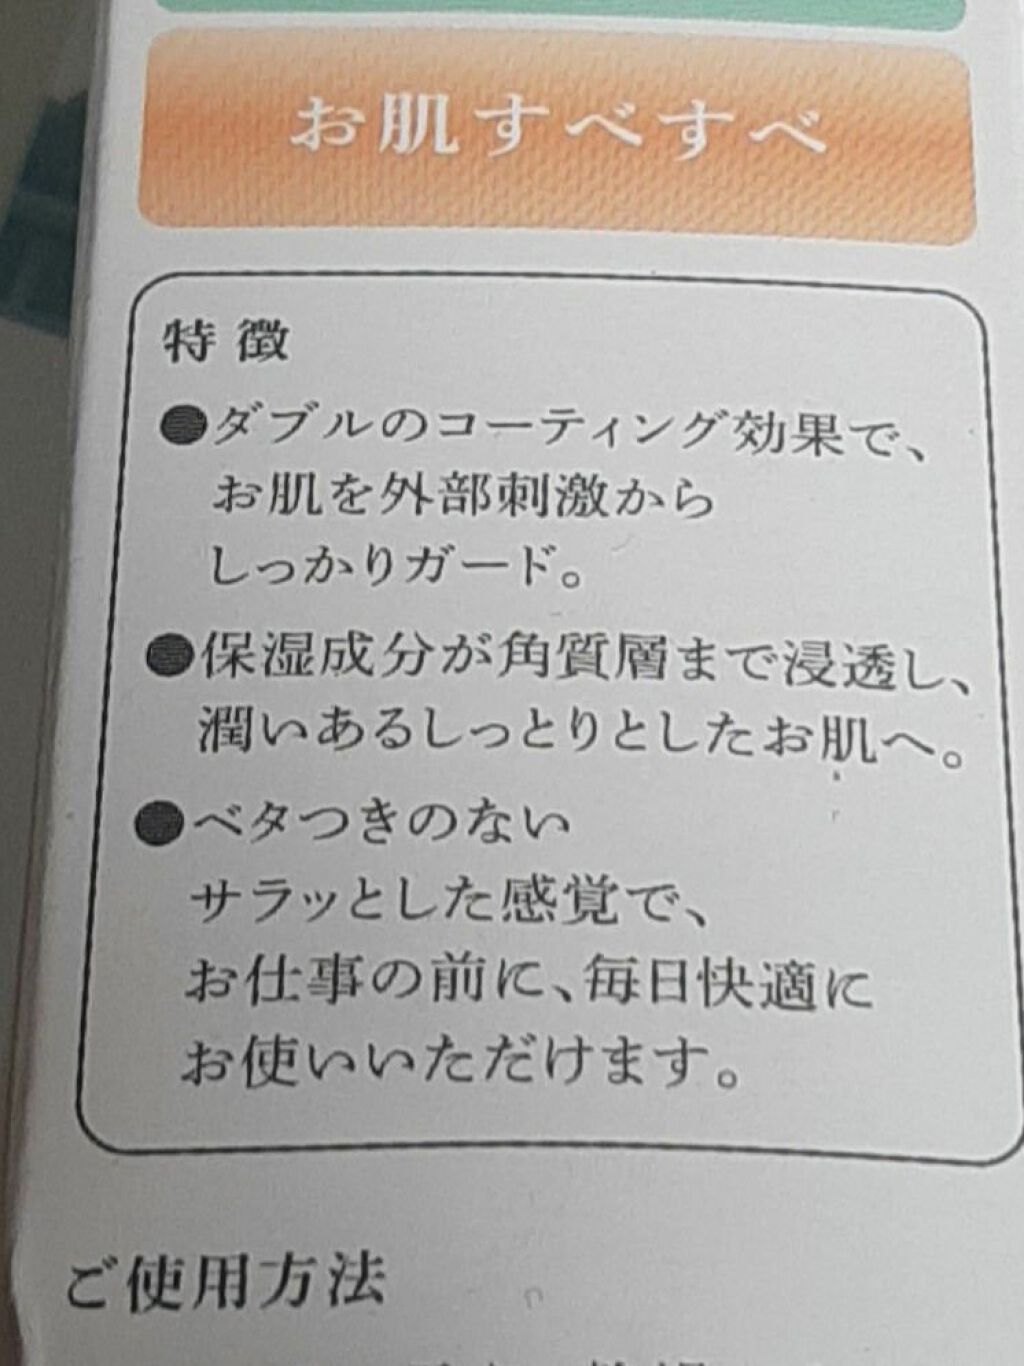 お肌すべすべ
特徴
●ダブルのコーティング効果で、
お肌を外部刺激から
しっかりガード。
●保湿成分が角質層まで浸透し、
潤いあるしっとりとしたお肌へ。
●ベタつきのない
サラッとした感覚で、
お仕事の前に、毎日快適に
お使いいただけます。
ご使用方法